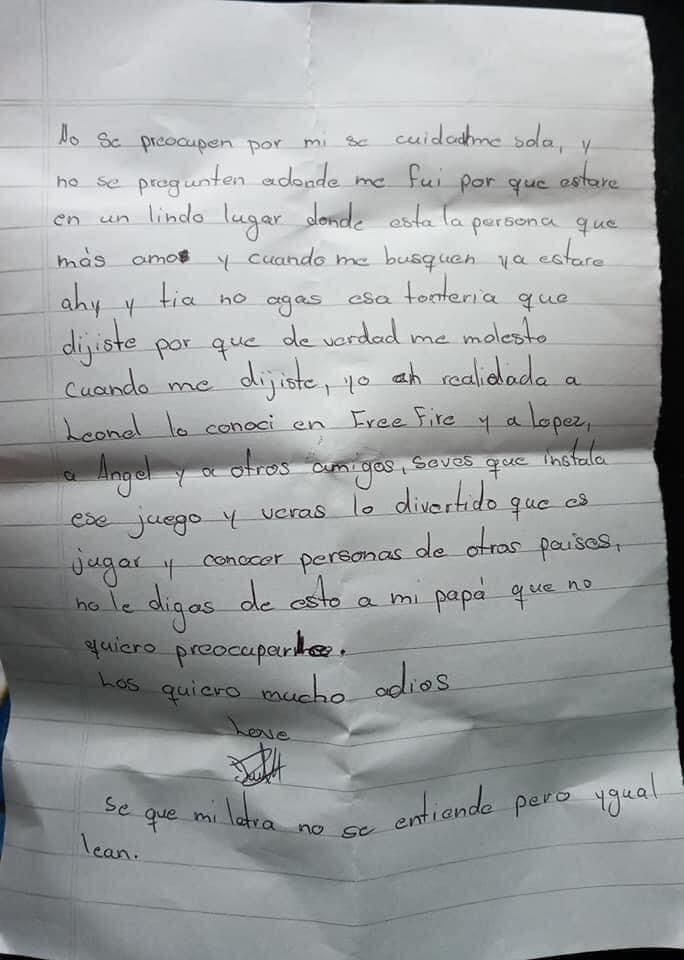 No se preocupen por mi se cuidadme sola, y
no se pregunten adonde me fui por que estare
en un lindo lugar donde esta la persona que
más amo y cuando me busquen ya estare
ahy y tia no agas esa tonteria que
dijiste por que de verdad me molesto
cuando me dijiste, yo en realidada a
Leonel lo conoci en Free Fire y a Lopez,
a Angel y a otros amigos, saves que instala
ese juego y veras lo divertido que es
jugar y conocer personas de otras paises,
no le digas de esto a mi papá que no
quiero preocuparle.
Los quiero mucho adios
Love
Se que mi letra no se entiende pero ygual
lean.